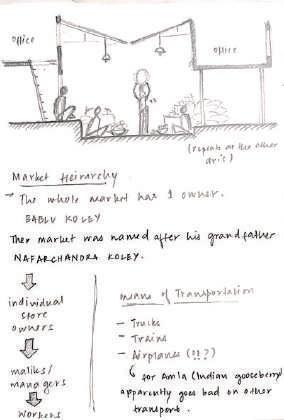 office
office
(repeats at the other
side)
Market Heirarchy
→ The whole market has 1 owner.
BABLU KOLEY
The market was named after his grandfather
NAFARCHANDRA KOLEY.
individual
store
owners
maliks/
managers
workers
means of Transportation
- Trucks
- Trains
- Airplanes (!!?)
for Amla (Indian gooseberry)
apparently goes bad on other
transport.